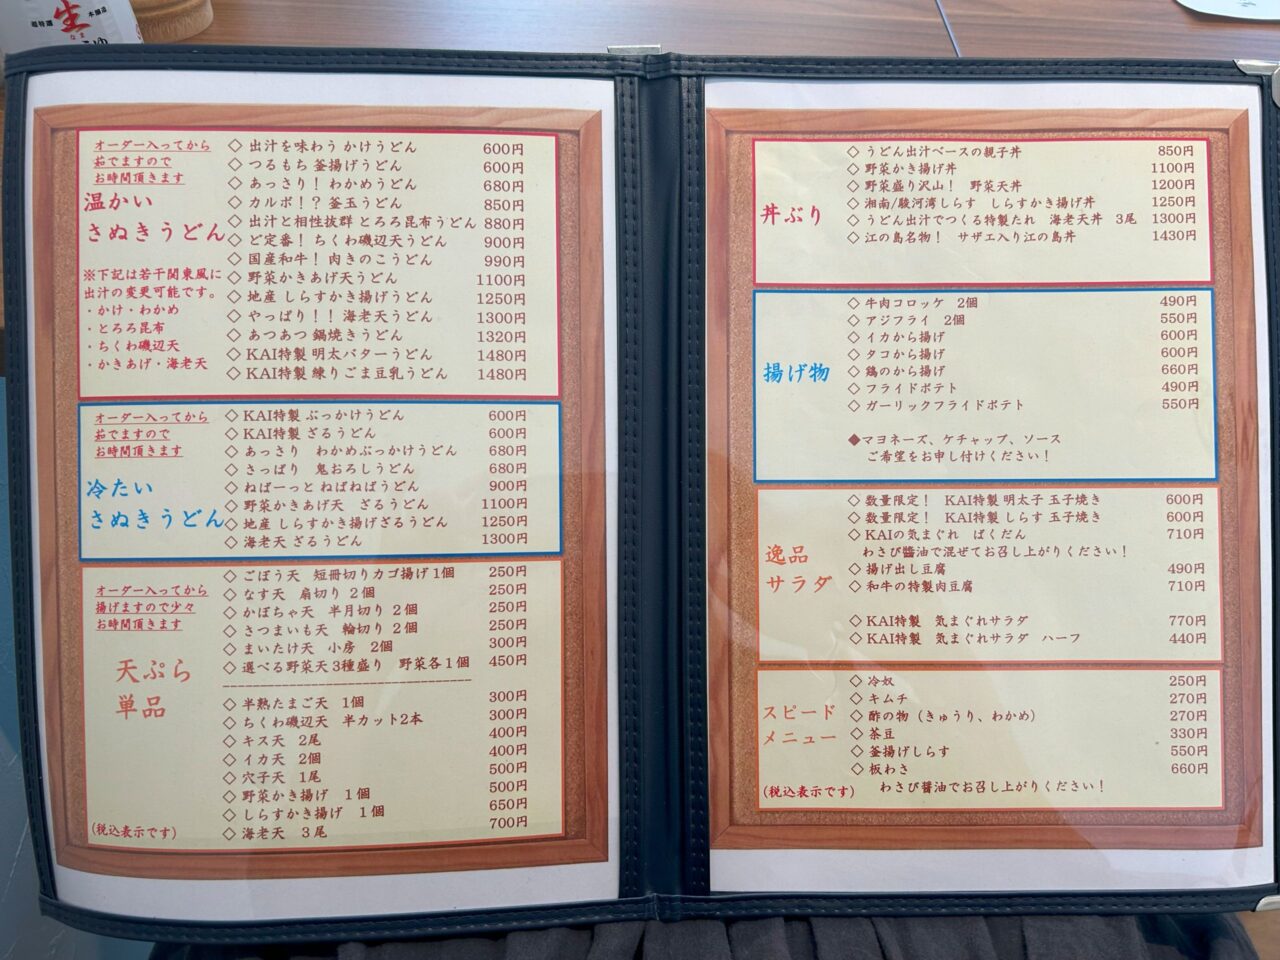 超特選
生
なま
本醸造
オーダー入ってから
茹でますので
お時間頂きます
温かい
さぬきうどん
※下記は若干関東風に
出汁の変更可能です。
・かけ・わかめ
・とろろ昆布
・ちくわ磯辺天
・かきあげ・海老天
◇ 出汁を味わう かけうどん 600円
◇ つるもち 釜揚げうどん 600円
◇ あっさり！ わかめうどん 680円
◇ カルボ！？ 釜玉うどん 850円
◇ 出汁と相性抜群 とろろ昆布うどん 880円
◇ ど定番！ ちくわ磯辺天うどん 900円
◇ 国産和牛！ 肉きのこうどん 990円
◇ 野菜かきあげ天うどん 1100円
◇ 地産 しらすかき揚げうどん 1250円
◇ やっぱり！！ 海老天うどん 1300円
◇ あつあつ 鍋焼きうどん 1320円
◇ KAI特製 明太バターうどん 1480円
◇ KAI特製 練りごま豆乳うどん 1480円
オーダー入ってから
茹でますので
お時間頂きます
冷たい
さぬきうどん
◇ KAI特製 ぶっかけうどん 600円
◇ KAI特製 ざるうどん 600円
◇ あっさり わかめぶっかけうどん 680円
◇ さっぱり 鬼おろしうどん 680円
◇ ねばーっと ねばねばうどん 900円
◇ 野菜かきあげ天 ざるうどん 1100円
◇ 地産 しらすかき揚げざるうどん 1250円
◇ 海老天 ざるうどん 1300円
オーダー入ってから
揚げますので少々
お時間頂きます
天ぷら
単品
◇ ごぼう天 短冊切りカゴ揚げ1個 250円
◇ なす天 扇切り 2個 250円
◇ かぼちゃ天 半月切り 2個 250円
◇ さつまいも天 輪切り 2個 250円
◇ まいたけ天 小房 2個 300円
◇ 選べる野菜天3種盛り 野菜各1個 450円
◇ 半熟たまご天 1個 300円
◇ ちくわ磯辺天 半カット2本 300円
◇ キス天 2尾 400円
◇ イカ天 2個 400円
◇ 穴子天 1尾 500円
◇ 野菜かき揚げ 1個 500円
◇ しらすかき揚げ 1個 650円
◇ 海老天 3尾 700円
(税込表示です)
丼ぶり
◇ うどん出汁ベースの親子丼 850円
◇ 野菜かき揚げ丼 1100円
◇ 野菜盛り沢山！ 野菜天丼 1200円
◇ 湘南/駿河湾しらす しらすかき揚げ丼 1250円
◇ うどん出汁でつくる特製たれ 海老天丼 3尾 1300円
◇ 江の島名物！ サザエ入り江の島丼 1430円
揚げ物
◇ 牛肉コロッケ 2個 490円
◇ アジフライ 2個 550円
◇ イカから揚げ 600円
◇ タコから揚げ 600円
◇ 鶏のから揚げ 660円
◇ フライドポテト 490円
◇ ガーリックフライドポテト 550円
◆マヨネーズ、ケチャップ、ソース
ご希望をお申し付けください！
逸品
サラダ
◇ 数量限定！ KAI特製 明太子 玉子焼き 600円
◇ 数量限定！ KAI特製 しらす 玉子焼き 600円
◇ KAIの気まぐれ ばくだん 710円
わさび醤油で混ぜてお召し上がりください！
◇ 揚げ出し豆腐 490円
◇ 和牛の特製肉豆腐 710円
◇ KAI特製 気まぐれサラダ 770円
◇ KAI特製 気まぐれサラダ ハーフ 440円
スピード
メニュー
◇ 冷奴 250円
◇ キムチ 270円
◇ 酢の物（きゅうり、わかめ） 270円
◇ 茶豆 330円
◇ 釜揚げしらす 550円
◇ 板わさ 660円
わさび醤油でお召し上がりください！
(税込表示です)